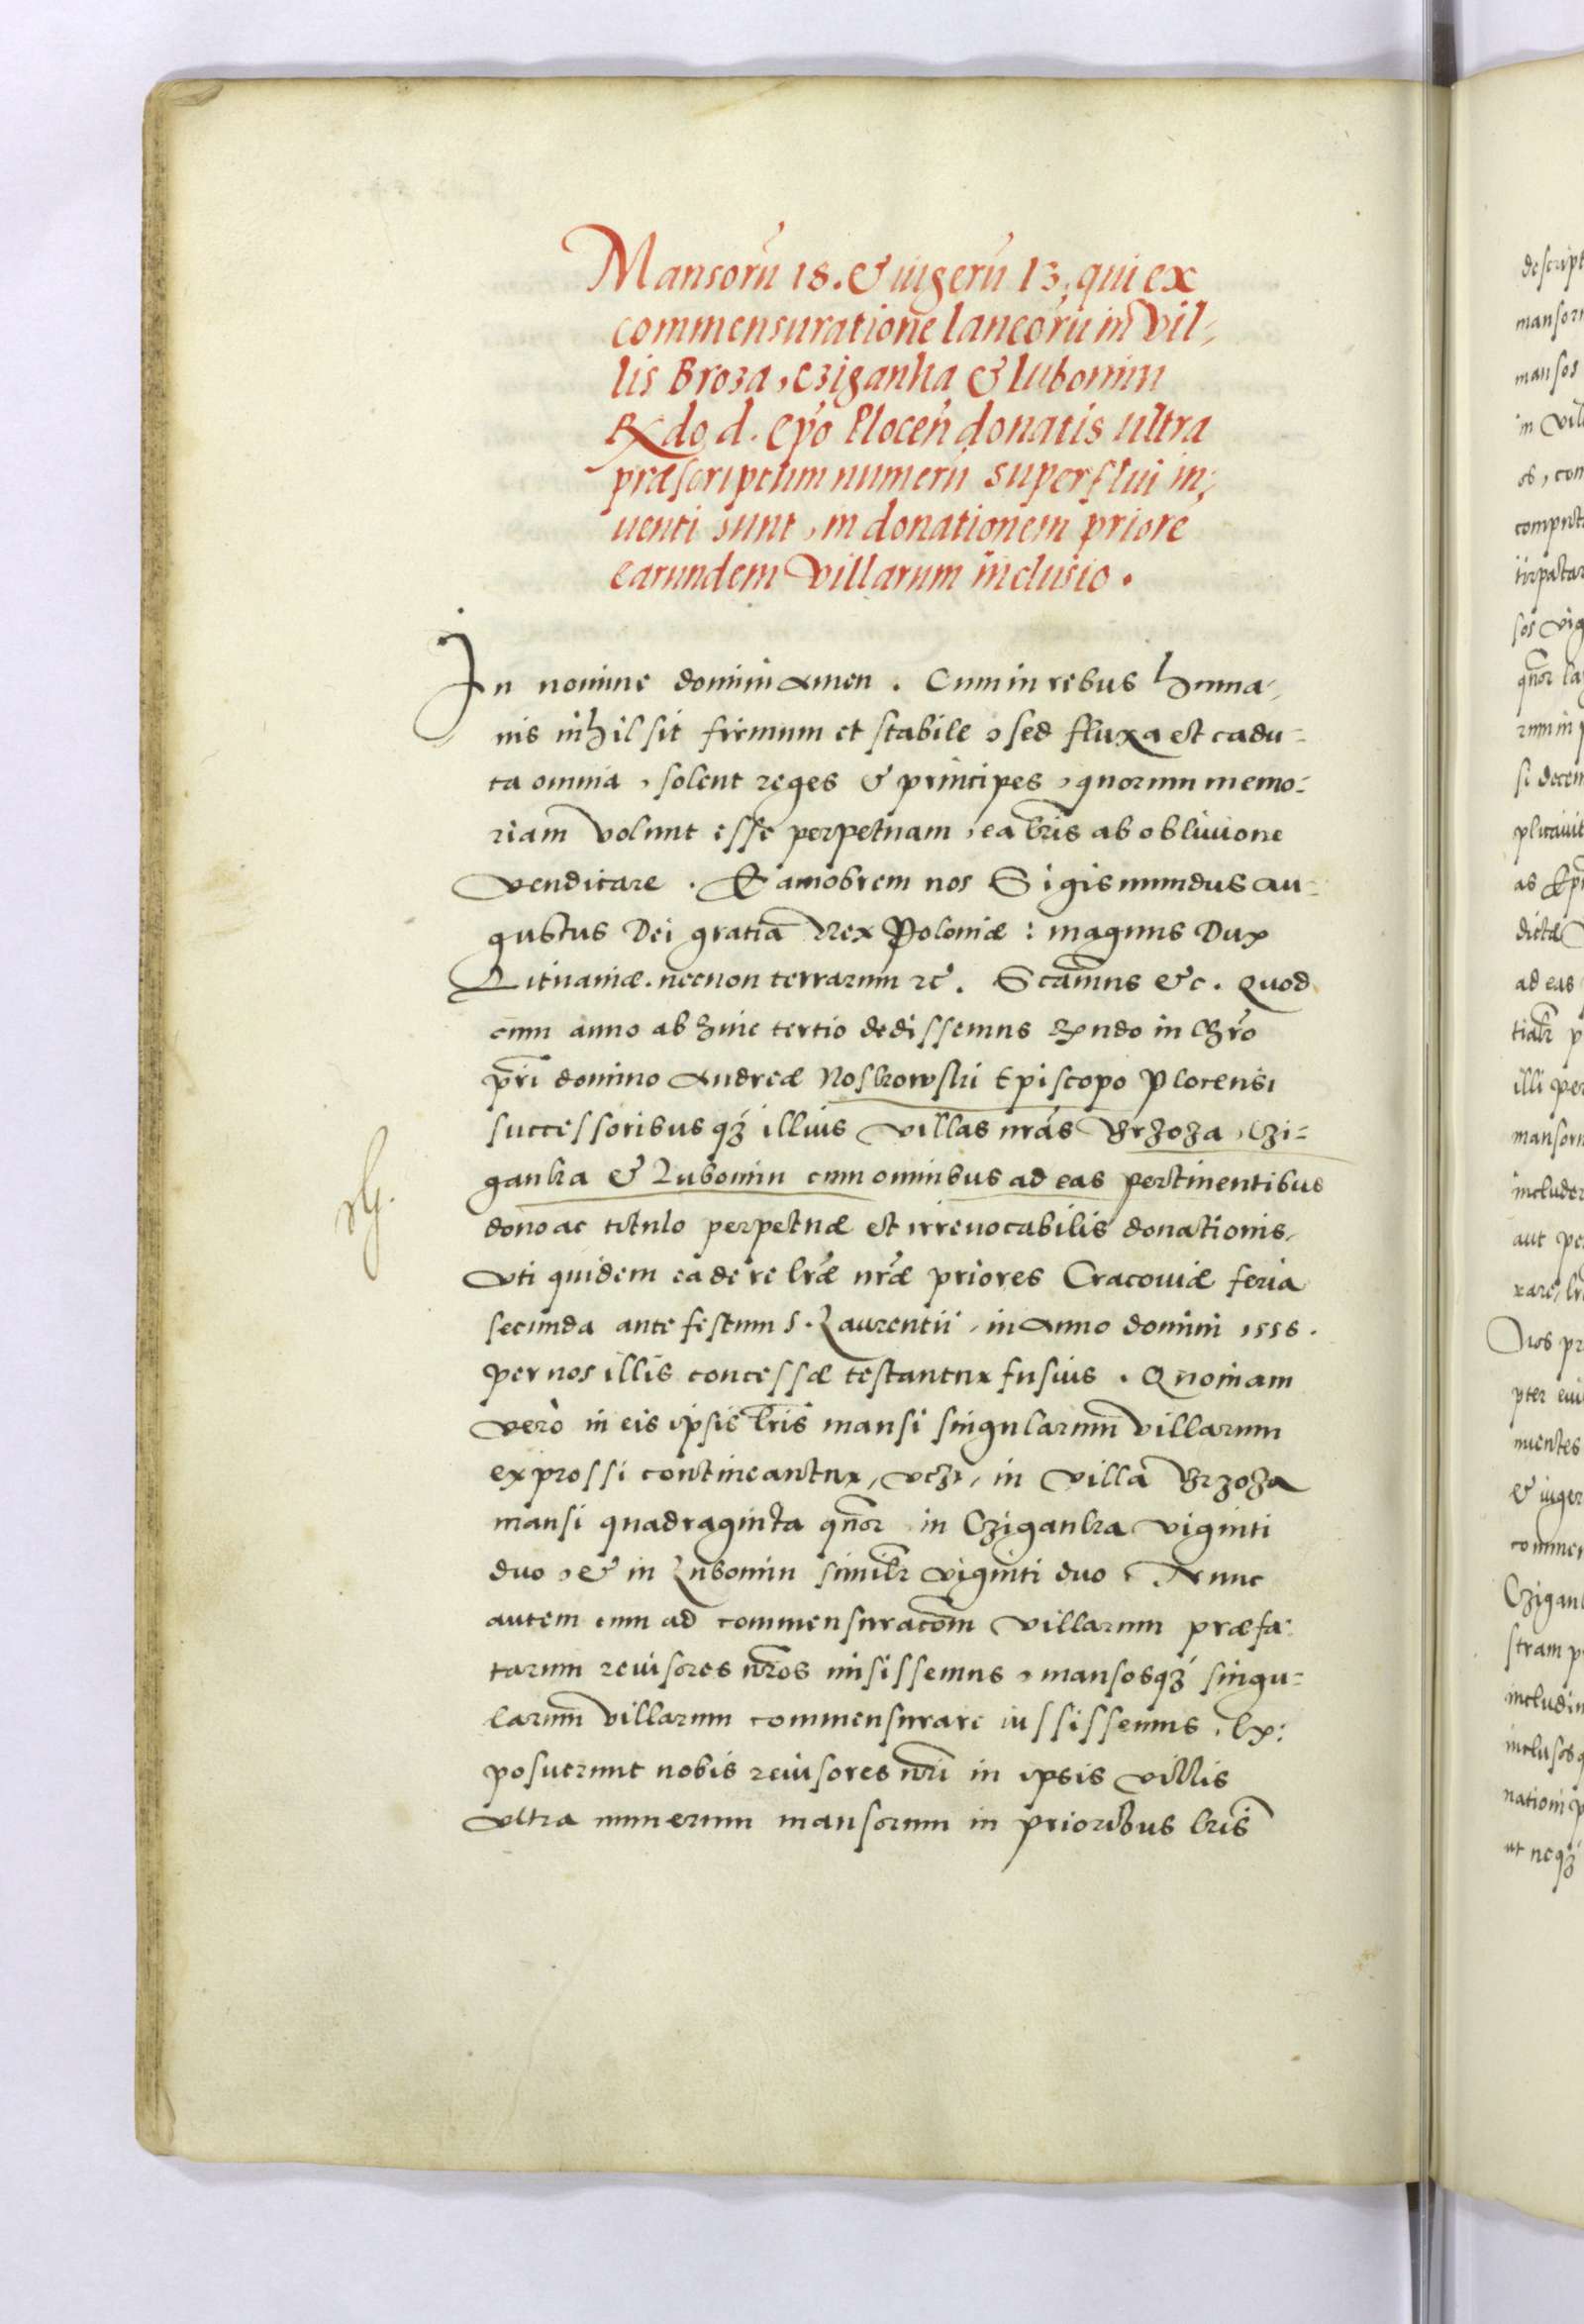 Mansorū 18. & iugerū 13, qui ex
commensuratione laneorū in Vil-
lis Broza, Cziganka & Lubomin
Rxdo d. Epo Plocen donatis ultra
præscriptum numerū superflui in-
uenti sunt, in donationem priorē
earundem Villarum inclusio.
In nomine domini amen. Cum in rebus huma-
nis nihil sit firmum et stabile, sed fluxa et cadu-
ca omnia, solent reges & principes, quorum memo-
riam volunt esse perpetuam, ea lris ab obliuione
vendicare. Eamobrem nos Sigismundus au-
gustus Dei gratia Rex Poloniæ: magnus Dux
Lituaniæ. necnon terrarum rc. Scamus &c. Quod
cum anno abhinc tertio dedissemus Rxndo in Chro
pri domino Andreæ Noskowski Episcopo Plocensi
successoribusqz illius villas nras Brzoza, Czi-
ganka & Lubomin cum omnibus ad eas pertinentibus
dono ac titulo perpetuæ et irreuocabilis donationis,
vti quidem ea de re lræ nræ priores Cracouiæ feria
secunda ante festum S. Laurentii, in Anno domini 1556.
per nos illis concessæ testantur fusius. Quoniam
verò in eis ipsis lris mansi singularum villarum
expressi contineantur, vczt, in villa Brzoza
mansi quadraginta qnor in Cziganka viginti
duo, & in Lubomin similr viginti duo. Nunc
autem cum ad commensuracom villarum præfa-
tarum reuisores nros misissemus, mansosqz singu-
larum villarum commensurare iussissemus, Ex-
posuerunt nobis reuisores nri in ipsis villis
vltra numerum mansorum in prioribus lris